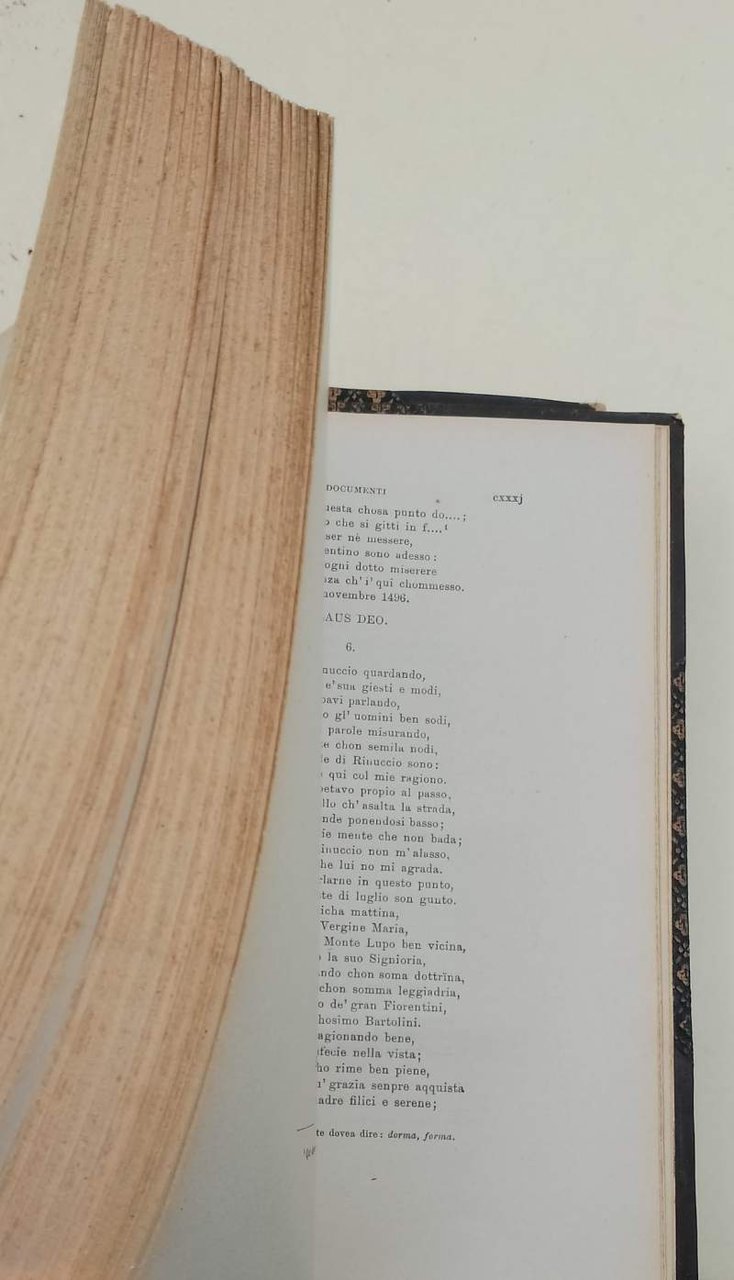 DOCUMENTI cxxxj
chosa punto do....;
che si gitti in f....¹
nè messere,
sono adesso:
ogni dotto miserere
ch'i' qui chommesso.
novembre 1496.
DEO.
6.
quardando,
e' sua giesti e modi,
parlando,
gl' uomini ben sodi,
parole misurando,
chon semila nodi,
di Rinuccio sono:
qui col mie ragiono.
propio al passo,
ch' asalta la strada,
ponendosi basso;
mente che non bada;
non m' alasso,
lui no mi agrada.
in questo punto,
di luglio son gunto.
mattina,
Vergine Maria,
Monte Lupo ben vicina,
la suo Signioria,
chon soma dottrina,
chon somma leggiadria,
de' gran Fiorentini,
Bartolini.
bene,
nella vista;
rime ben piene,
grazia senpre aqquista
filici e serene;
dovea dire: dorma, forma.